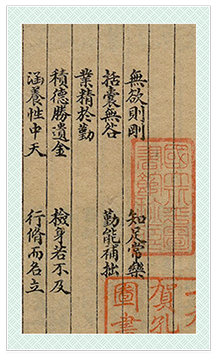 無欲則剛 知足常樂
括囊無咎 勤能補拙
業精於勤
積德勝遺金 檢身若不及
涵養性中天 行脩而名立
賀孔
圖書